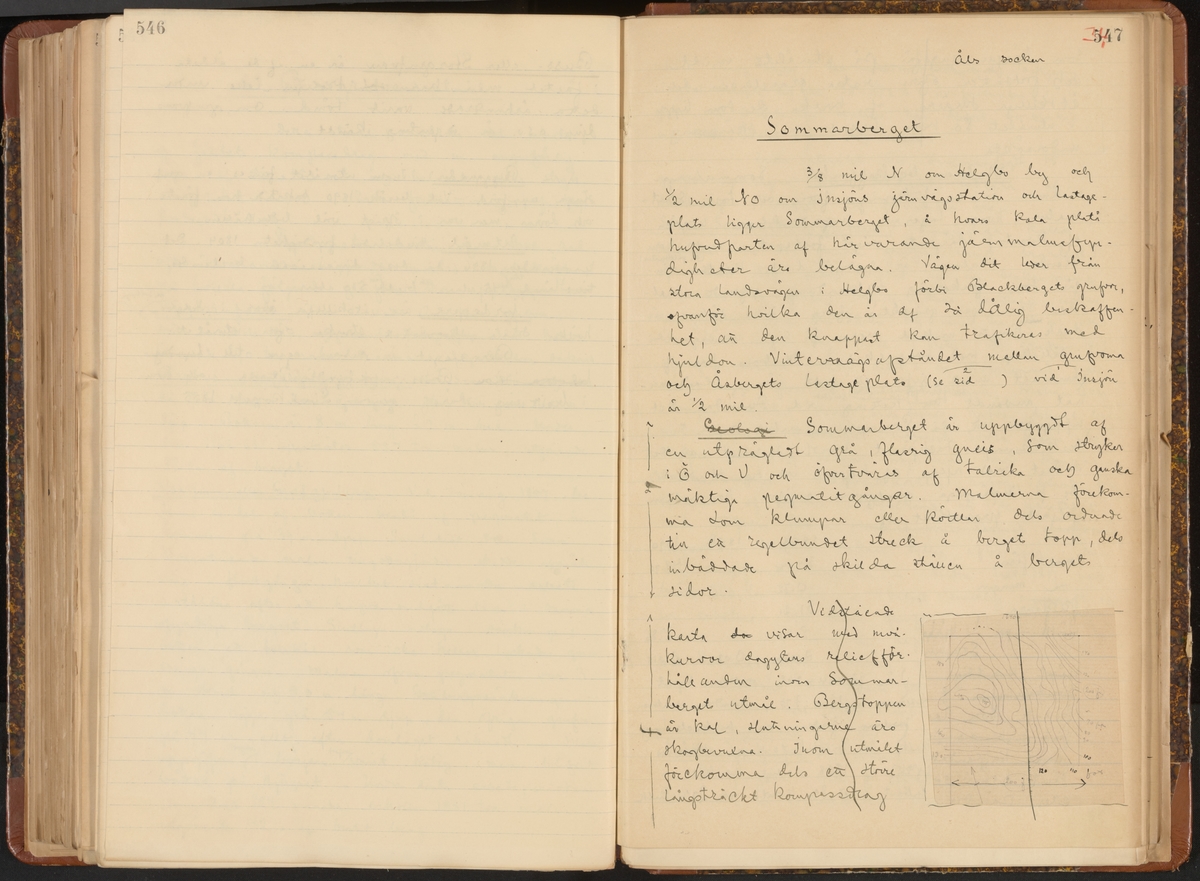 546
547
Åls socken
Sommarberget
3/8 mil N om Helgbo by och
1/2 mil NO om Insjöns järnvägsstation och lastage-
plats ligger Sommarberget, å hvars kala platå
hufvudparten af härvarande järnmalmsfyn-
digheter äro belägna. Vägen dit leder från
stora landsvägen i Helgbo förbi Blackbergets grufvor,
ofvanför hvilka den är af så dålig beskaffen-
het, att den knappast kan trafikeras med
hjuldon. Vinterwägsafståndet mellan grufvorna
och Åsbergets lastageplats (se sid ) vid Insjön
är 1/2 mil.
Geologi Sommarberget är uppbyggdt af
en utprägladt grå, flasrig gneis, som stryker
i Ö och V och öfvertväras af talrika och ganska
mäktiga pegmatitgångar. Malmerna förekom-
ma som klumpar eller körtlar dels ordnade
till ett regelbundet streck å berget topp, dels
inbäddade på skilda ställen å bergets
sidor.
Vidstående
karta visar med nivå-
kurvor dagytans relief för-
hållanden inom Sommar-
berget utmål. Bergstoppen
är kal, sluttningarne äro
skogbevuxna. Inom utmålet
förekomma dels ett större
långsträckt kompassdrag